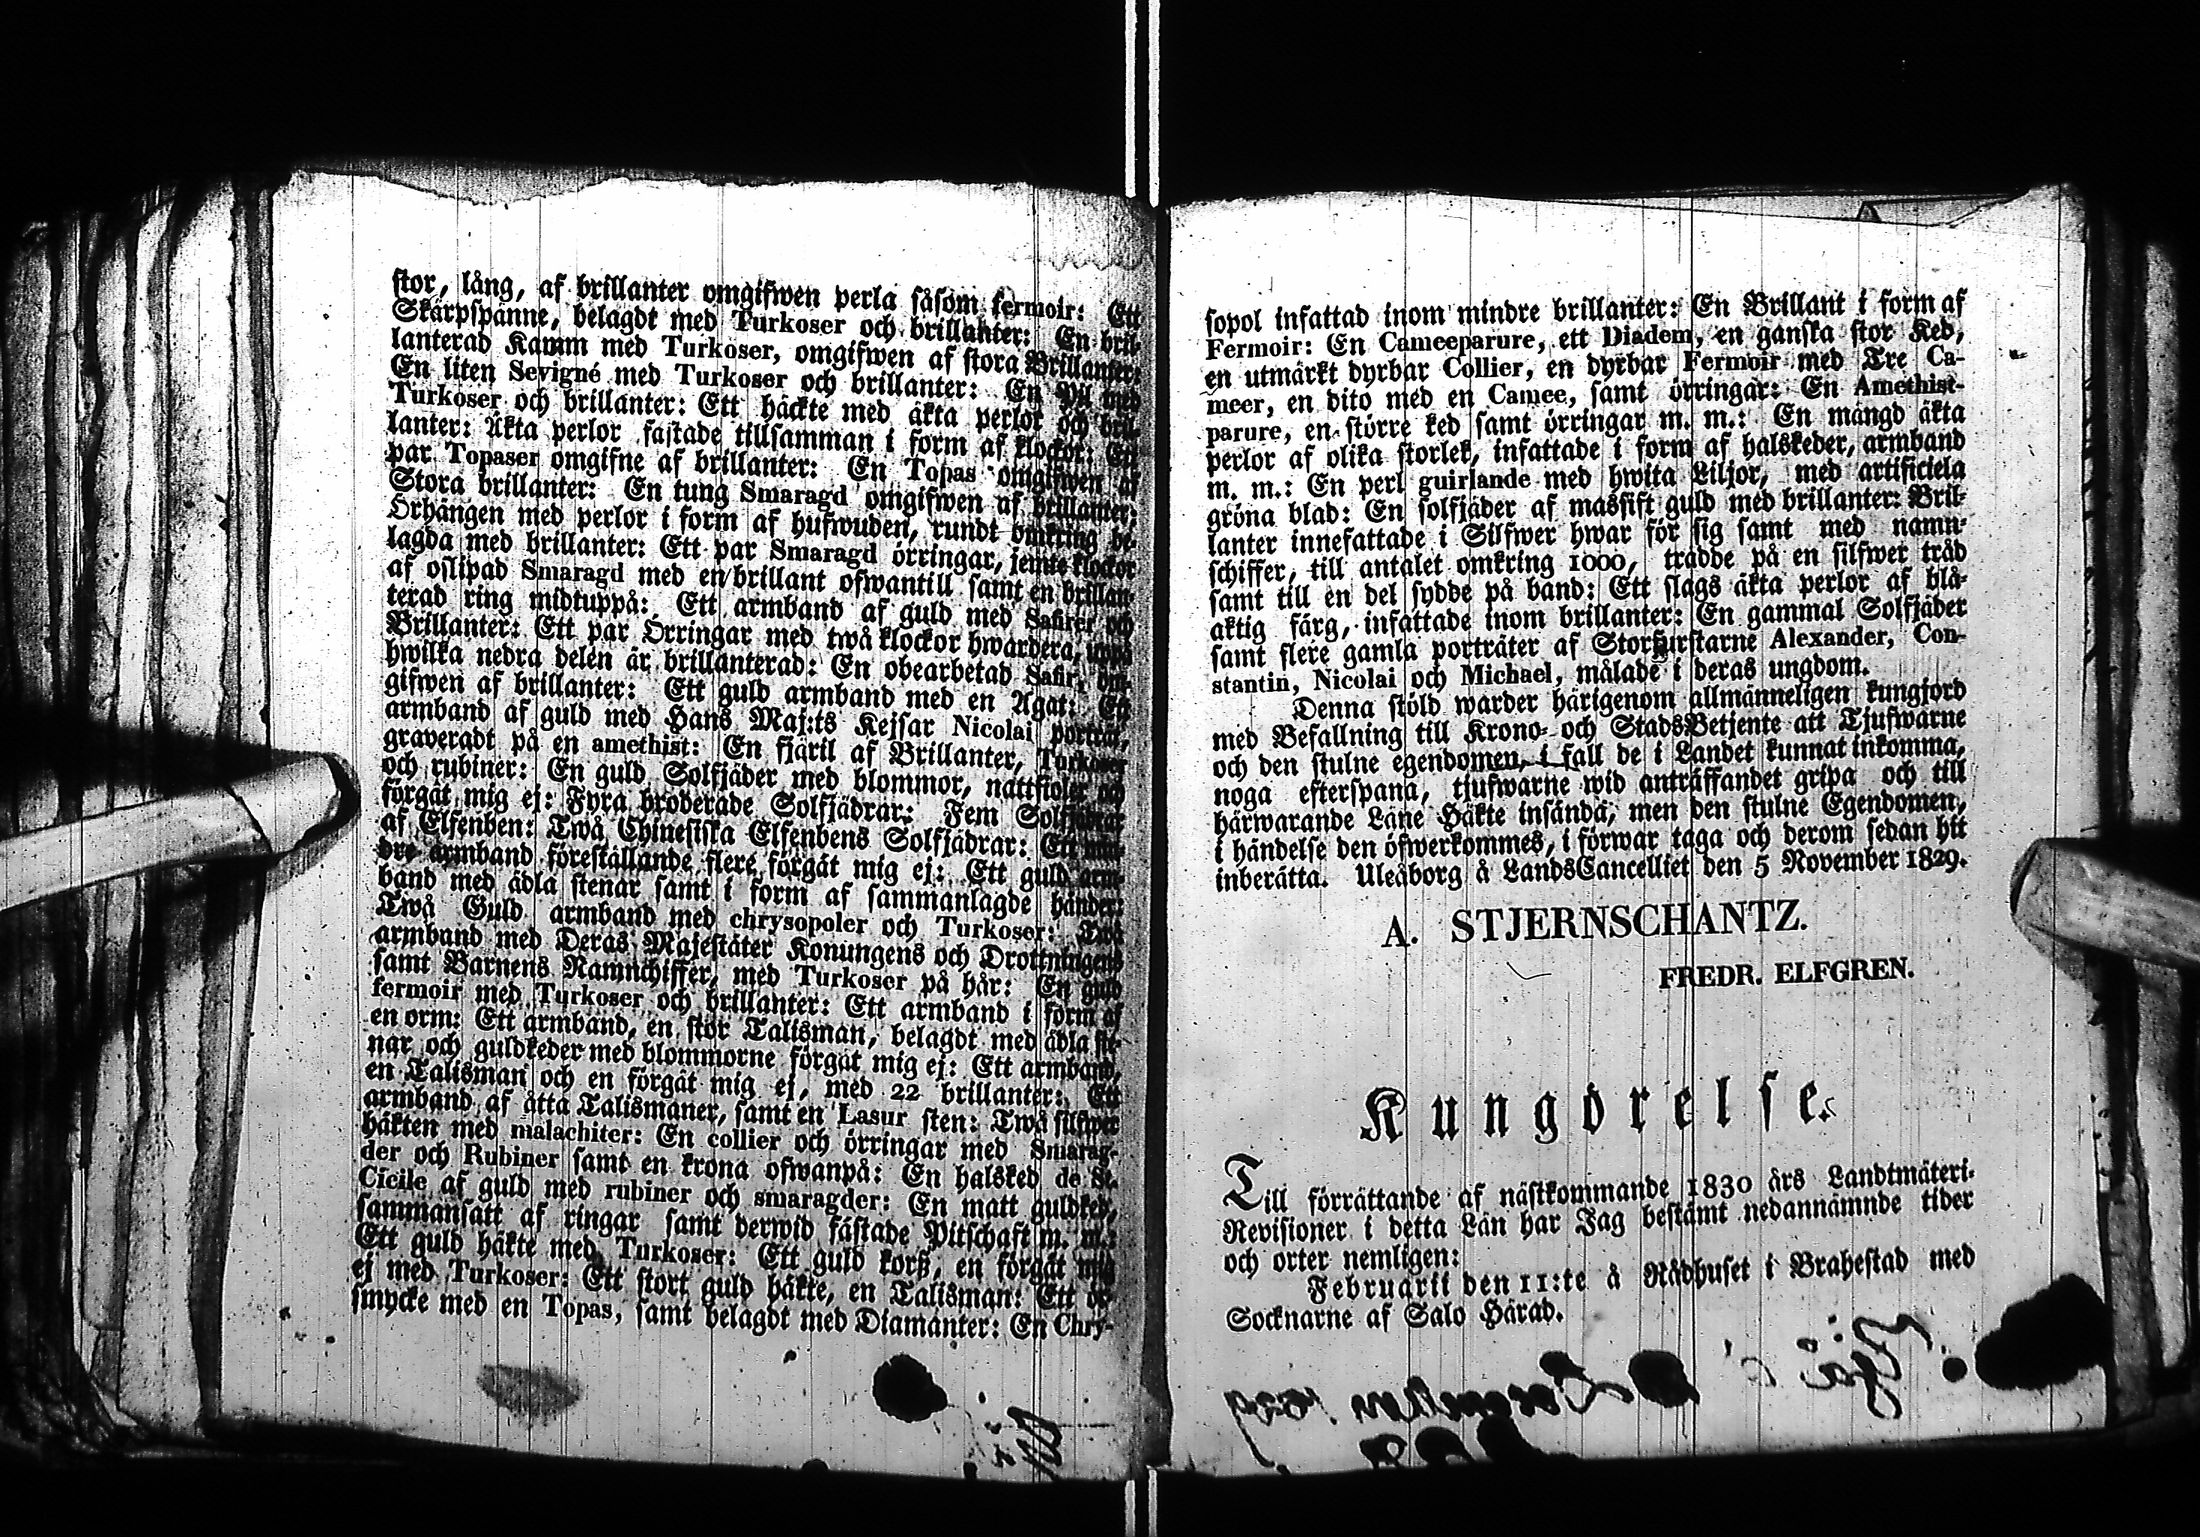 stor, lång, af brillanter omgifwen perla såsom fermoir: Ett
Skärpspänne, belagdt med Turkoser och brillanter: En bril-
lanterad Kamm med Turkoser, omgifwen af stora Brillanter:
En liten Sevigné med Turkoser och brillanter: En Pil med
Turkoser och brillanter: Ett häckte med äkta perlor och bril-
lanter: Äkta perlor fastade tillsamman i form af klockor: Ett
par Topaser omgifne af brillanter: En Topas omgifwen af
Stora brillanter: En tung Smaragd omgifwen af brillanter:
Örhängen med perlor i form af hufwuden, rundt omkring be-
lagda med brillanter: Ett par Smaragd örringar, jemte klockor
af oslipad Smaragd med en brillant ofwantill samt en brillan-
terad ring midtuppå: Ett armband af guld med Safirer och
Brillanter: Ett par Örringar med twå klockor hwardera, uppå
hwilka nedra delen är brillanterad: En obearbetad Safir, om-
gifwen af brillanter: Ett guld armband med en Agat: Ett
armband af guld med Hans Maj:ts Kejsar Nicolai porträt,
graveradt på en amethist: En fjäril af Brillanter, Turkoser
och rubiner: En guld Solfjäder med blommor, nattfioler och
förgät mig ej: Fyra broderade Solfjädrar: Fem Solfjädrar
af Elfenben: Twå Chinesiska Elfenbens Solfjädrar: Ett min-
dre armband föreställande flere förgät mig ej: Ett guld arm-
band med ädla stenar samt i form af sammanlagde händer:
Twå Guld armband med chrysopoler och Turkoser: Twå
armband med Deras Majestäter Konungens och Drottningens
samt Barnens Namnchiffer, med Turkoser på hår: En guld
fermoir med Turkoser och brillanter: Ett armband i form af
en orm: Ett armband, en stor Talisman, belagdt med ädla ste-
nar och guldkeder med blommorne förgät mig ej: Ett armband,
en Talisman och en förgät mig ej, med 22 brillanter: Ett
armband af åtta Talismaner, samt en Lasur sten: Twå silfwer
häkten med malachiter: En collier och örringar med Smarag-
der och Rubiner samt en krona ofwanpå: En halsked de St.
Cicile af guld med rubiner och smaragder: En matt guldked,
sammansatt af ringar samt derwid fästade Pitschaft m. m.:
Ett guld häkte med Turkoser: Ett guld korß, en förgät mig
ej med Turkoser: Ett stort guld häkte, en Talisman: Ett ör-
smycke med en Topas, samt belagdt med Diamanter: En Chry-
sopol infattad inom mindre brillanter: En Brillant i form af
Fermoir: En Cameeparure, ett Diadem, en ganska stor Ked,
en utmärkt dyrbar Collier, en dyrbar Fermoir med Tre Ca-
meer, en dito med en Camee, samt örringar: En Amethist-
parure, en större ked samt örringar m. m.: En mängd äkta
perlor af olika storlek, infattade i form af halskeder, armband
m. m.: En perl guirlande med hwita Liljor, med artificiela
gröna blad: En solfjäder af massift guld med brillanter: Bril-
lanter innefattade i Silfwer hwar för sig samt med namn-
schiffer, till antalet omkring 1000, trädde på en silfwer tråd
samt till en del sydde på band: Ett slags äkta perlor af blå-
aktig färg, infattade inom brillanter: En gammal Solfjäder
samt flere gamla porträter af Storfurstarne Alexander, Con-
stantin, Nicolai och Michael, målade i deras ungdom.
Denna stöld warder härigenom allmänneligen kungjord
med Befallning till Krono- och StadsBetjente att Tjufwarne
och den stulne egendomen, i fall de i Landet kunnat inkomma,
noga efterspana, tjufwarne wid anträffandet gripa och till
härwarande Läne Häkte insända, men den stulne Egendomen,
i händelse den öfwerkommes, i förwar taga och derom sedan hit
inberätta. Uleåborg å LandsCancelliet den 5 November 1829.
A. STJERNSCHANTZ.
FREDR. ELFGREN.
Kungörelse.
Till förrättande af nästkommande 1830 års Landtmäteri-
Revisioner i detta Län har Jag bestämt nedannämnde tider
och orter nemligen:
Februarii den 11:te å Rådhuset i Brahestad med
Socknarne af Salo Härad.